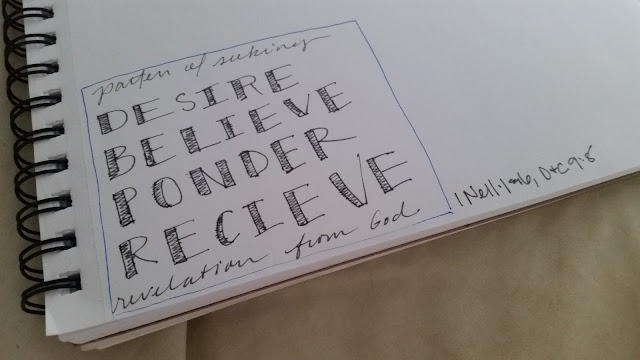 pattern of seeking
DESIRE
BELIEVE
PONDER
RECIEVE
revelation from God.
1 Ne 11:1-6, D+C 9:8